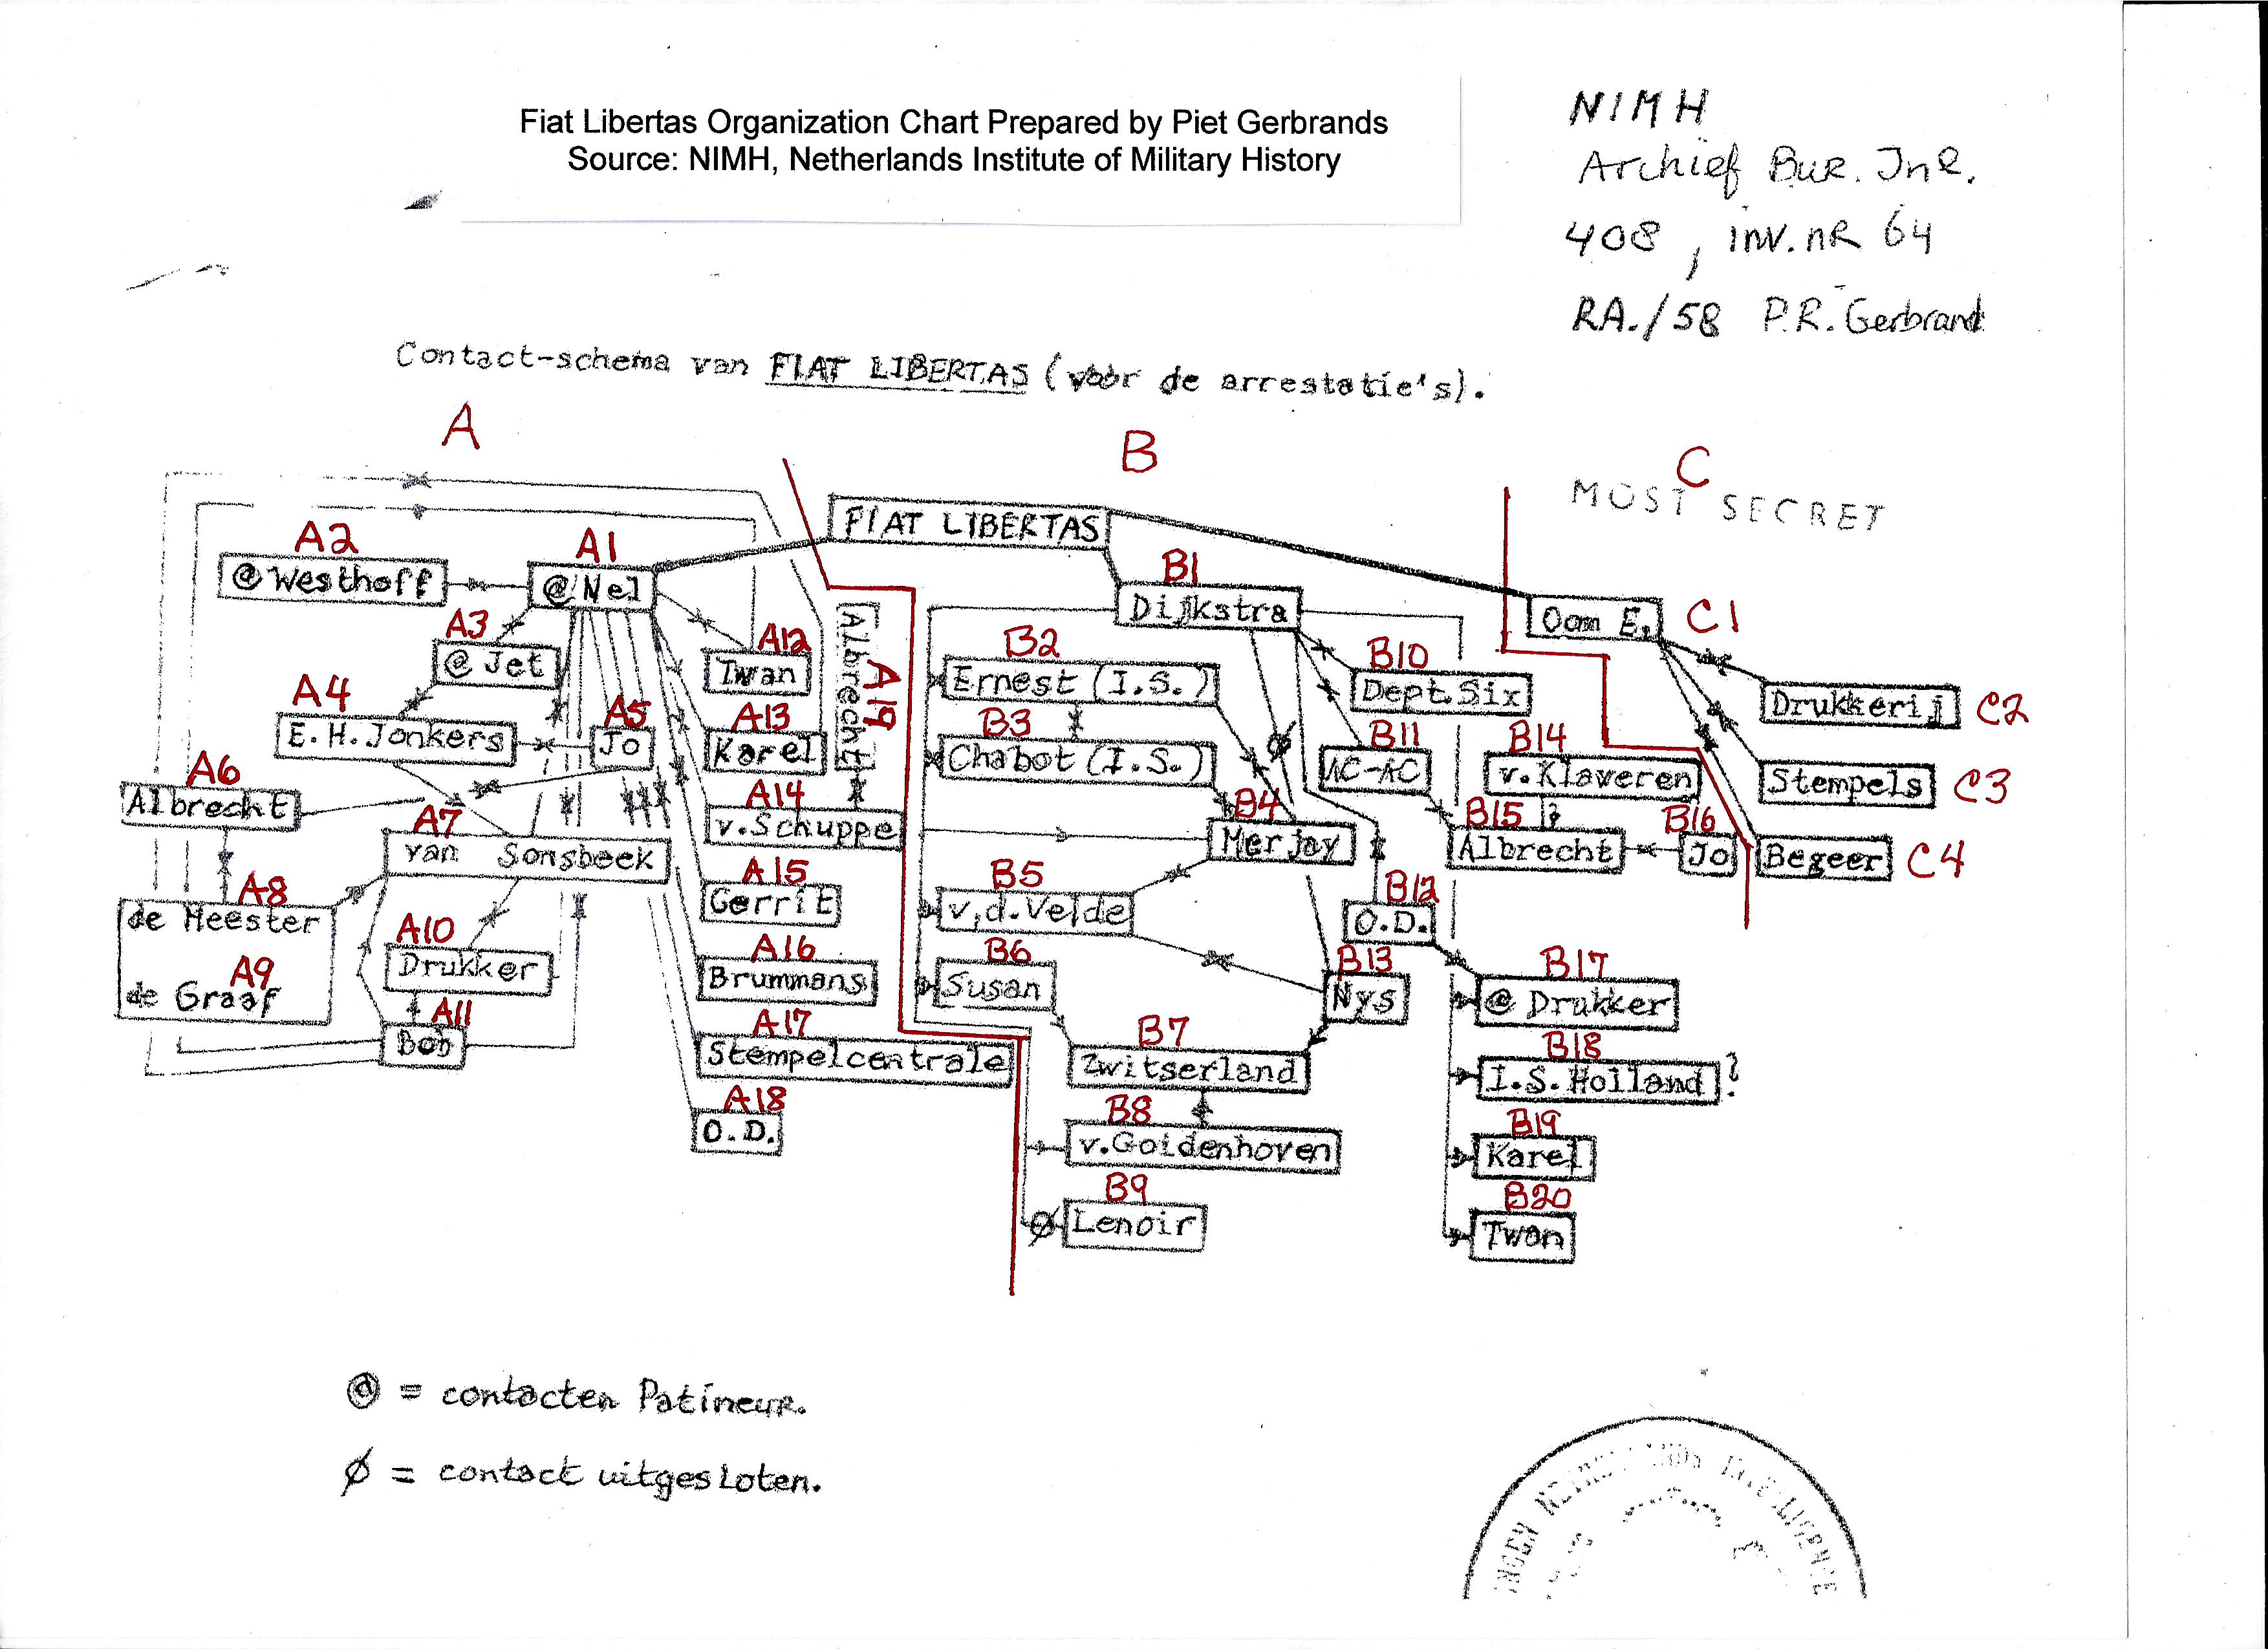 Fiat Libertas Organization Chart Prepared by Piet Gerbrands
Source: NIMH, Netherlands Institute of Military History
NIMH
Archief Bur. Inl.
408, inv.nR 64
RA./58 P.R. Gerbrand
Contact-schema van FIAT LIBERTAS (vóór de arrestatie's).
A
B
C
MOST SECRET
FIAT LIBERTAS
A2
@ Westhoff
A1
@ Nel
A3
@ Jet
A4
E.H. Jonkers
A5
Jo
A6
Albrecht
A7
van Sonsbeek
A8
de Meester
A9
de Graaf
A10
Drukker
A11
Bob
A12
Twan
A13
Karel
A14
v. Schuppe
A15
Gerrit
A16
Brummans
A17
Stempelcentrale
A18
O.D.
Albrecht
A19
B1
Dijkstra
B2
Ernest (I.S.)
B3
Chabot (I.S.)
B4
Merjay
B5
v.d. Velde
B6
Susan
B7
Zwitserland
B8
v. Goidenhoven
B9
Lenoir
B10
Dept. Six
B11
AC-AC
B12
O.D.
B13
Nys
B14
v. Klaveren
?
B15
Albrecht
B16
Jo
B17
@ Drukker
B18
I.S. Holland ?
B19
Karel
B20
Twan
Oom E. C1
Drukkerij C2
Stempels C3
Begeer C4
@ = contacten Patineur.
Ø = contact uitgesloten.